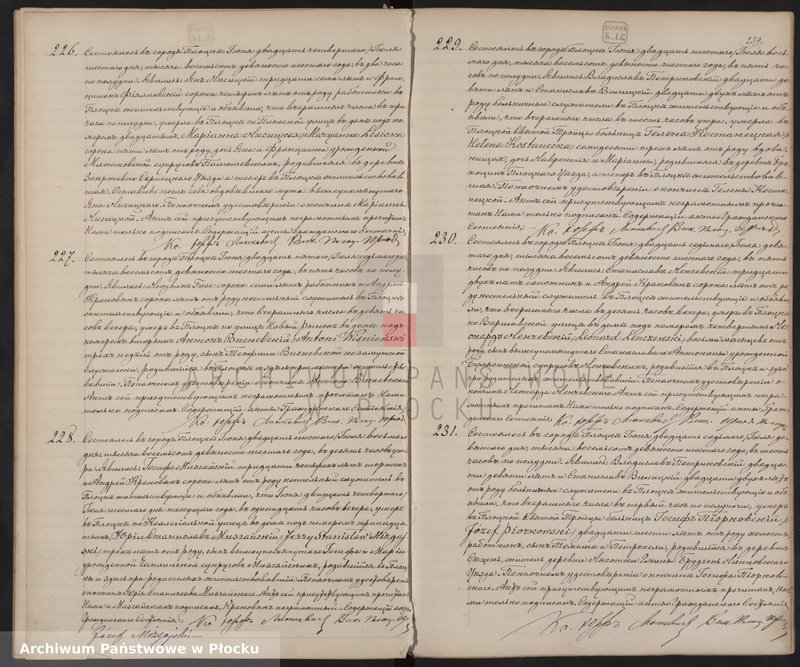 239.
226. Состоялось въ городѣ Плоцкѣ Іюня двадцать четвертаго /Іюля
шестого/ дня, тысяча восемьсотъ девяносто шестого года, въ два часа
по полудни. Явились Янъ Лисицкій тридцати семи лѣтъ и Фран-
цишекъ сорока четырехъ лѣтъ отъ роду работники въ
Плоцкѣ жительствующіе и объявили, что вчерашняго числа въ три
часа по полудни, умерла въ Плоцкѣ по Плонской улицѣ въ домѣ подъ но-
меромъ двадцатымъ, Маріанна Лисицкая /Maryanna Lisicka
сорока пяти лѣтъ отъ роду, дочь Яна и Францишки урожденной
супруговъ родившаяся въ деревнѣ
Закржево Серпецкаго Уѣзда а теперь въ Плоцкѣ жительствовав-
шая. Оставивъ послѣ себя овдовѣвшаго мужа вышеупомянутаго
Яна Лисицкаго. По наочномъ удостовѣреніи о кончинѣ Маріанны
Лисицкой, Актъ сей присутствующимъ неграмотнымъ прочитанъ
Нами только подписанъ. Содержащій акты гражданскаго состоянія
227. Состоялось въ городѣ Плоцкѣ Іюня двадцать пятаго /Іюля седьмого/ дня
тысяча восемьсотъ девяносто шестого года, въ пять часовъ по полу-
дни. Явились Антонъ сорока семи лѣтъ работникъ и Андрей
Краковякъ сорока лѣтъ отъ роду костельный служитель въ Плоцкѣ
жительствующіе и объявили, что вчерашняго числа въ девять ча-
совъ вечера, умеръ въ Плоцкѣ по улицѣ Новый Рынокъ въ домѣ подъ
номеромъ вторымъ Антонъ Висневскій /Antoni Wiśniewski
трехъ недѣль отъ роду, сынъ Теофили Висневской незамужной
служанки, родившійся въ Плоцкѣ и здѣсь при матери жительство-
вавшій. По наочномъ удостовѣреніи о кончинѣ Антона Висневскаго
Актъ сей присутствующимъ неграмотнымъ прочитанъ Нами
только подписанъ. Содержащій Акты Гражданскаго Состоянія
228. Состоялось въ городѣ Плоцкѣ Іюня двадцать шестого /Іюля восьмого/
дня, тысяча восемьсотъ девяносто шестого года, въ десять часовъ ут-
ра. Явились Іосифъ Мизгайскій тридцати четырехъ лѣтъ
и Андрей Краковякъ сорока лѣтъ отъ роду костельный служитель въ
Плоцкѣ жительствующіе и объявили, что Іюня двадцать четвертаго /
Іюля шестого дня текущаго года, въ одинадцать часовъ вечера, умеръ
въ Плоцкѣ по Коллегіальной улицѣ въ домѣ подъ номеромъ тринадца-
тымъ, Юрій Станиславъ Мизгайскій /Jerzy Stanisław Mizgaj-
ski/ трехъ лѣтъ отъ роду, сынъ вышеупомянутаго Іосифа и Маріи
урожденной супруговъ Мизгайскихъ, родившійся въ Плоц-
кѣ и здѣсь при родителяхъ жительствовавшій. По наочномъ удостовѣреніи
о кончинѣ Юрія Станислава Мизгайскаго. Актъ сей присутствующимъ прочитанъ
Нами и Мизгайскимъ подписанъ, Краковякъ неграмотный. Содержащій акты
Гражданскаго Состоянія
Józef Mizgajski
229. Состоялось въ городѣ Плоцкѣ Іюня двадцать шестого /Іюля вось-
мого/ дня, тысяча восемьсотъ девяносто шестого года, въ пять ча-
совъ по полудни. Явились Владиславъ Петриковскій двадцати де-
вяти лѣтъ и Станиславъ двадцати двухъ лѣтъ отъ
роду больничные служители въ Плоцкѣ жительствующіе и объ-
явили, что вчерашняго числа въ шесть часовъ утра, умерла въ
Плоцкой Святой Троицы больницѣ Гелена Костанецкая /
Helena Kostanecka/ семидесяти трехъ лѣтъ отъ роду, вдова,
дочь Лаврентія и Маріанны, родившаяся въ деревнѣ
Плоцкаго Уѣзда, а теперь въ Плоцкѣ жительствовав-
шая. По наочномъ удостовѣреніи о кончинѣ Гелены Коста-
нецкой. Актъ сей присутствующимъ неграмотнымъ прочи-
танъ Нами только подписанъ. Содержащій акты Гражданскаго
Состоянія
230. Состоялось въ городѣ Плоцкѣ Іюня двадцать седьмого /Іюля девя-
таго/ дня, тысяча восемьсотъ девяносто шестого года, въ пять
часовъ по полудни. Явились Станиславъ Ленчевскій тридцати
двухъ лѣтъ и Андрей Краковякъ сорока лѣтъ отъ ро-
ду костельный служитель въ Плоцкѣ жительствующіе и объяви-
ли, что вчерашняго числа въ десять часовъ вечера, умеръ въ Плоцкѣ
по Варшавской улицѣ въ домѣ подъ номеромъ четвертымъ Ле-
онардъ Ленчевскій /Leonard Lenczewski/ восьми мѣсяцевъ отъ
роду, сынъ вышеупомянутаго Станислава и Антонины урожденной
супруговъ Ленчевскихъ, родившійся въ Плоцкѣ и здѣсь
при родителяхъ жительствовавшій. По наочномъ удостовѣреніи о
кончинѣ Леонарда Ленчевскаго. Актъ сей присутствующимъ не-
грамотнымъ прочитанъ Нами только подписанъ. Содержащій акты Граж-
данскаго Состоянія
231. Состоялось въ городѣ Плоцкѣ Іюня двадцать седьмого /Іюля де-
вятаго/ дня, тысяча восемьсотъ девяносто шестого года, въ шесть
часовъ по полудни. Явились Владиславъ Петриковскій двадца-
ти девяти лѣтъ и Станиславъ двадцати двухъ лѣтъ
отъ роду больничные служители въ Плоцкѣ жительствующіе и объ-
явили, что вчерашняго числа въ первый часъ по полуночи, умеръ
въ Плоцкой Святой Троицы больницѣ Іосифъ Піорковскій /
Józef Piorkowski/, двадцати шести лѣтъ отъ роду холостъ,
работникъ, сынъ Томаша и Петронели, родившійся въ деревнѣ
житель деревни Гмины Липновскаго
Уѣзда. По наочномъ удостовѣреніи о кончинѣ Іосифа Піорков-
скаго. Актъ сей присутствующимъ неграмотнымъ прочитанъ На-
ми только подписанъ. Содержащій акты Гражданскаго Состоянія
ARCHIWUM PAŃSTWOWE
W PŁOCKU
Archiwum Państwowe w Płocku